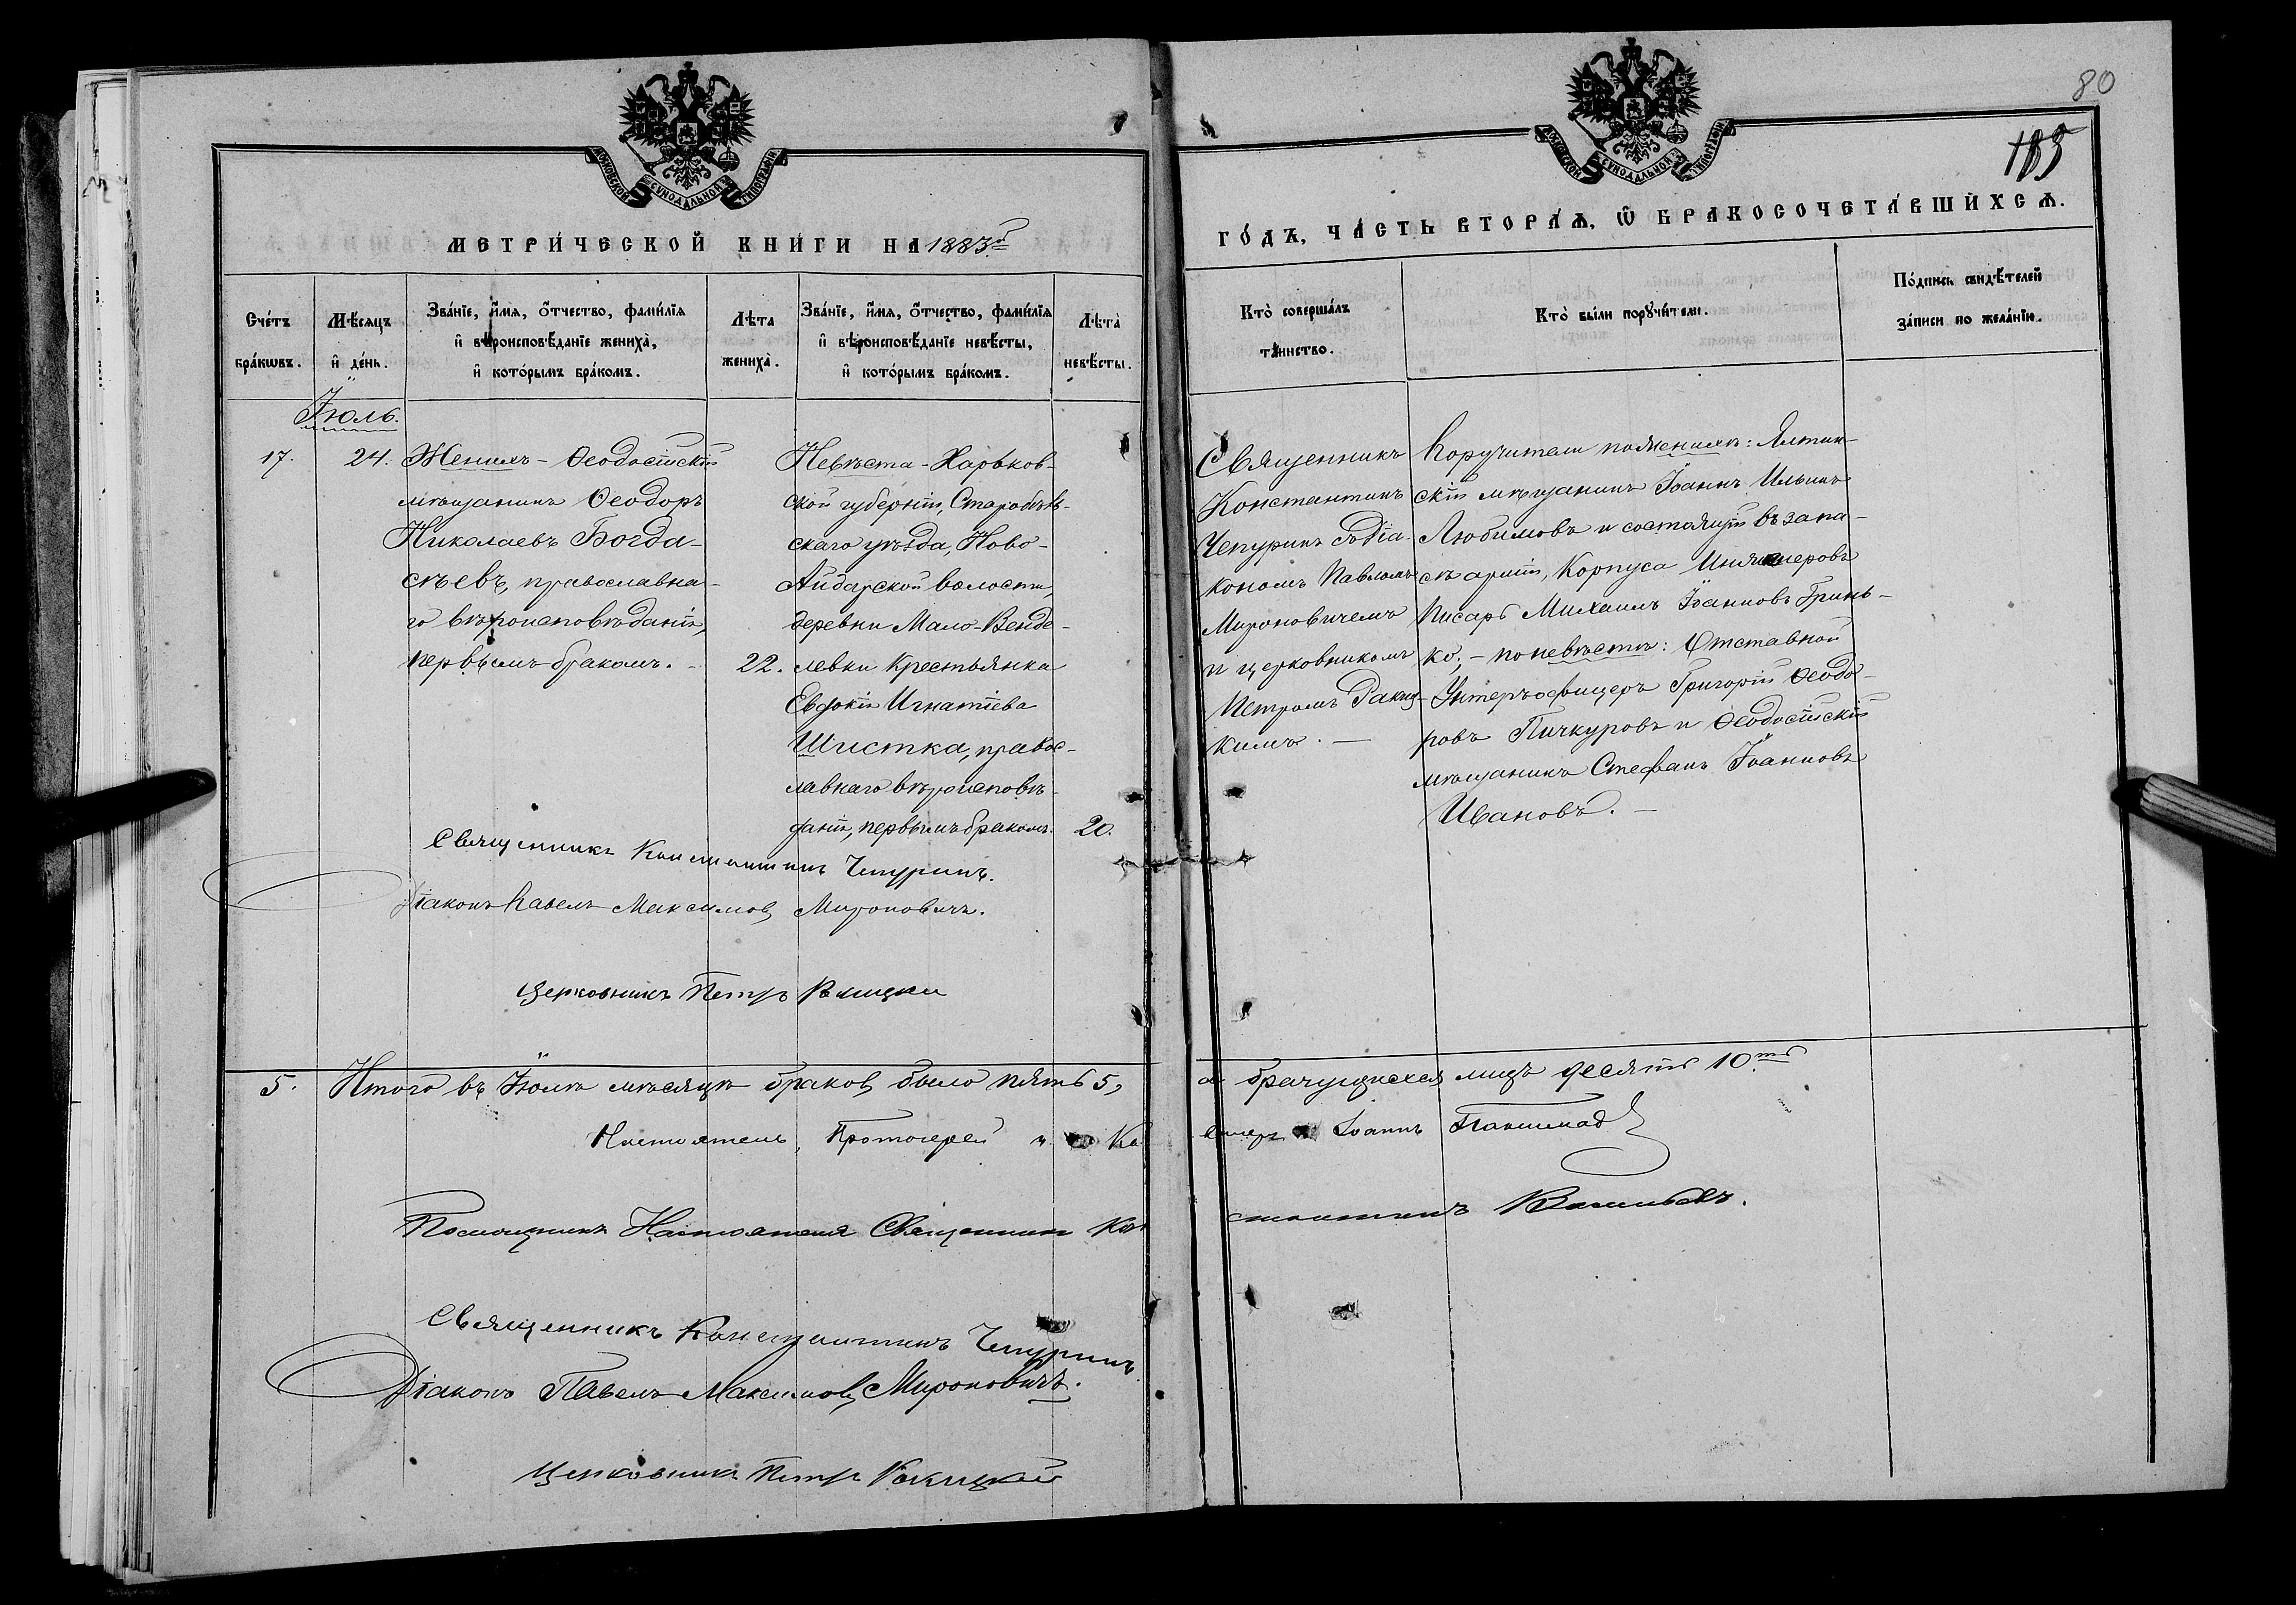 80
185
МОСКОВСКОЙ СѴНОДАЛЬНОЙ ТИПОГРАФІИ
МОСКОВСКОЙ СѴНОДАЛЬНОЙ ТИПОГРАФІИ
МЕТРИ́ЧЕСКОЙ КНИ́ГИ НА 1883й
ГО́ДЪ, ЧА́СТЬ ВТОРА́Ѧ, Ѿ БРАКОСОЧЕТА́ВШИХСѦ.
Сче́тъ бра́кѡвъ.
Мѣ́сяцъ и҆ де́нь.
Зва́нїе, и҆́мя, ѻ҆́тчество, фами́лїя
и҆ вѣроисповѣ́данїе жениха̀,
и҆ кото́рымъ бра́комъ.
Лѣ́та жениха̀.
Зва́нїе, и҆́мя, ѻ҆́тчество, фами́лїя
и҆ вѣроисповѣ́данїе невѣ́сты,
и҆ кото́рымъ бра́комъ.
Лѣта̀ невѣ́сты.
Кто̀ соверша́лъ
та́инство.
Кто̀ бы́ли порꙋчи́тели.
По́дпись свидѣ́телей
за́писи по жела́нїю.
Іюль.
17.
24.
Женихъ - Ѳеодосійскій
мѣщанинъ Ѳеодоръ
Николаевъ Богда-
съевъ, православна-
го вѣроисповѣданія,
первымъ бракомъ. -
22.
Невѣста - Харьков-
ской губерніи, Старобѣль-
скаго уѣзда, Ново-
Айдарской волости,
деревни Мало-Венде-
левки крестьянка
Евдокія Игнатіева
Шистка, правос-
лавнаго вѣроисповѣ-
данія, первымъ бракомъ.
20.
Священникъ
Константинъ
Чепуринъ съ діа-
кономъ Павломъ
Мироновичемъ
и церковникомъ
Петромъ Ракиц-
кимъ. —
Поручители по женихѣ: Ялтин-
скій мѣщанинъ Іоаннъ Ильинъ
Любимовъ и состоящій въ запа-
сѣ арміи, Корпуса Инженеровъ
писарь Михаилъ Іоанновъ Гринь-
ко; - по невѣстѣ: Отставной
Унтеръ-офицеръ Григорій Ѳеодо-
ровъ Пичкуровъ и Ѳеодосійскій
мѣщанинъ Стефанъ Іоанновъ
Ивановъ. —
Священникъ Константинъ Чепуринъ.
Діаконъ Павелъ Максимовъ Мироновичъ.
Церковникъ Петръ Ракицкій
5. Итого въ Іюлѣ мѣсяцѣ браковъ было пять 5, а брачущихся лицъ десять 10ть
Настоятель, Протоіерей Іоаннъ
Помощникъ Настоятеля Священникъ Константинъ Васильевъ.
Священникъ Константинъ Чепуринъ
Діаконъ Павелъ Максимовъ Мироновичъ.
Церковникъ Петръ Ракицкій